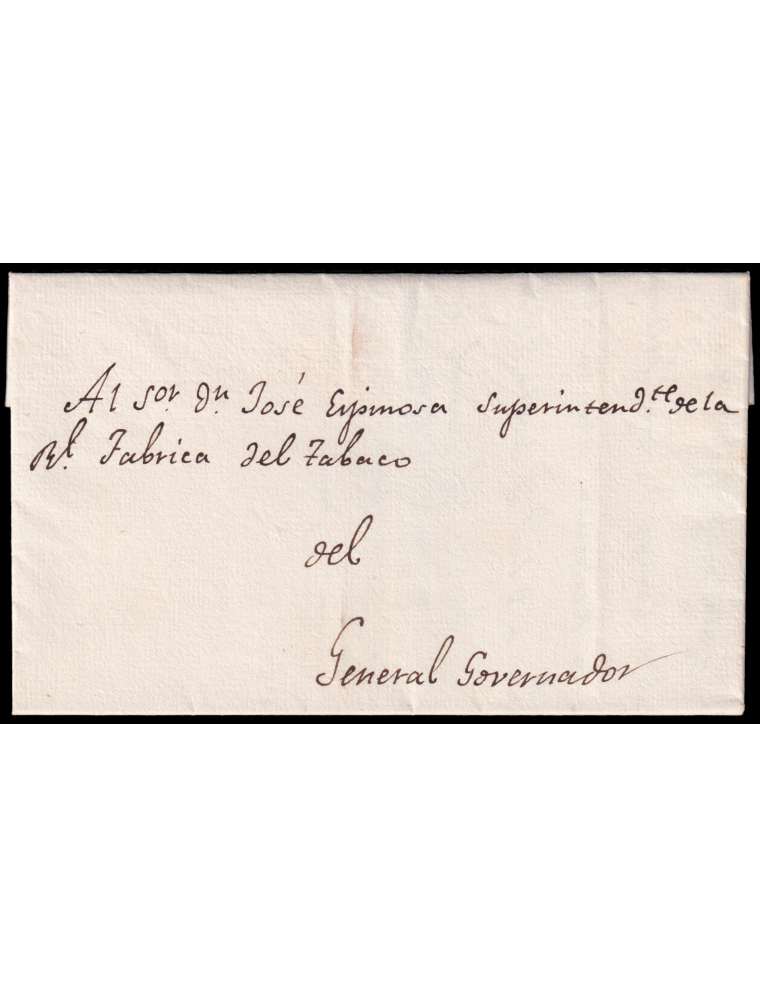 Al Sor. Dn. José Espinosa Superintend.te de la
Rl. Fabrica del Tabaco
del
General Governador